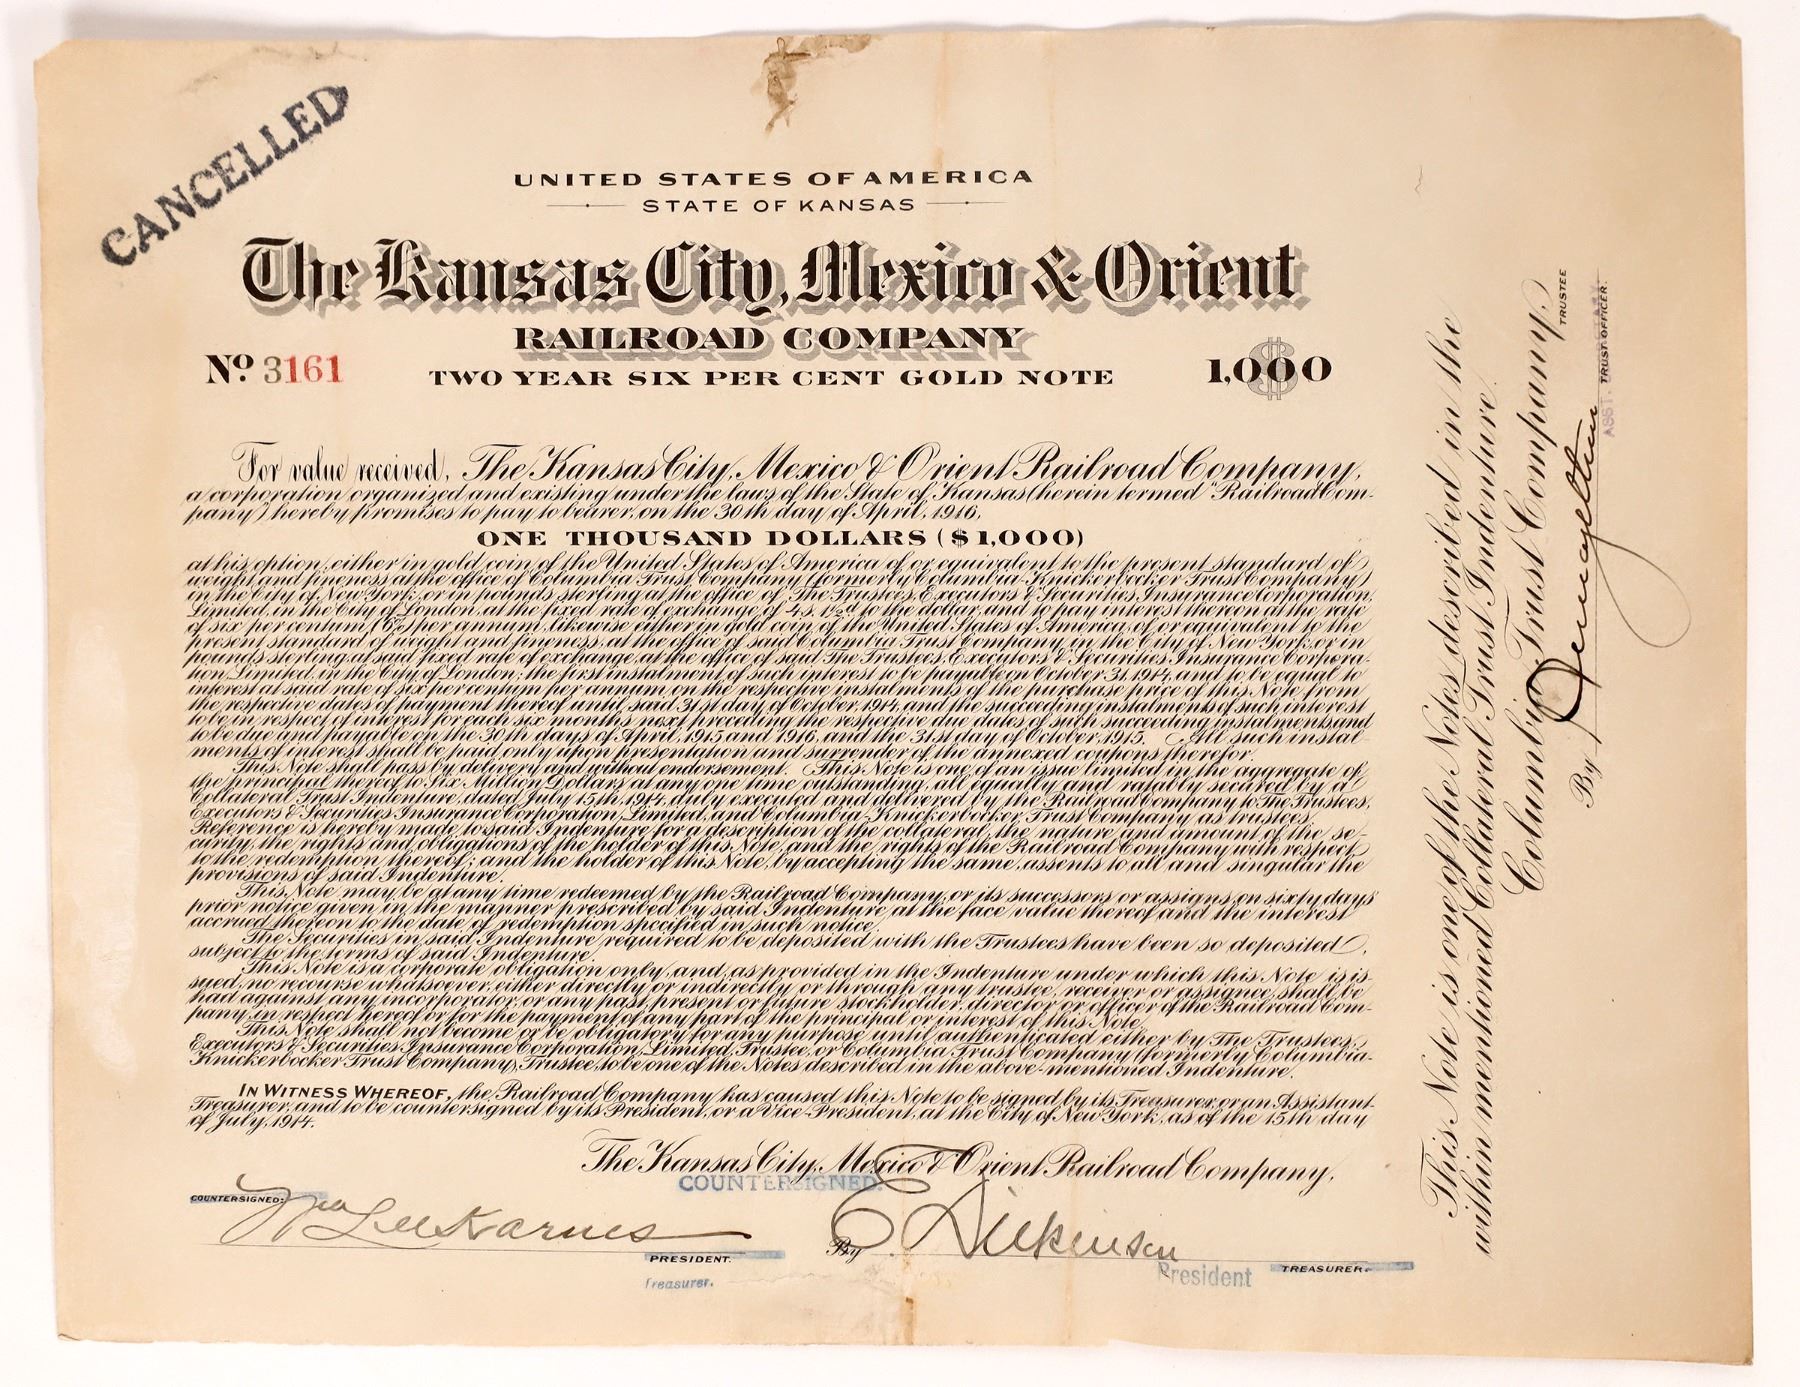 CANCELLED
UNITED STATES OF AMERICA
STATE OF KANSAS
The Kansas City, Mexico & Orient
RAILROAD COMPANY
No. 3161
TWO YEAR SIX PER CENT GOLD NOTE
$1,000
For value received, The Kansas City, Mexico & Orient Railroad Company,
a corporation organized and existing under the laws of the State of Kansas (herein termed "Railroad Com-
pany") hereby promises to pay to bearer, on the 30th day of April, 1916,
ONE THOUSAND DOLLARS ($1,000)
at his option, either in gold coin of the United States of America of or equivalent to the present standard of
weight and fineness at the office of Columbia Trust Company (formerly Columbia-Knickerbocker Trust Company)
in the City of New York, or in pounds sterling at the office of The Trustees, Executors & Securities Insurance Corporation,
Limited, in the City of London, at the fixed rate of exchange of 4s. 1½d to the dollar, and to pay interest thereon at the rate
of six per centum (6%) per annum, likewise either in gold coin of the United States of America, of or equivalent to the
present standard of weight and fineness, at the office of said Columbia Trust Company, in the City of New York, or in
pounds sterling, at said fixed rate of exchange, at the office of said The Trustees, Executors & Securities Insurance Corpora-
tion, Limited, in the City of London; the first instalment of such interest to be payable on October 31, 1914, and to be equal to
interest at said rate of six per centum per annum on the respective instalments of the purchase price of this Note from
the respective dates of payment thereof until said 31st day of October, 1914, and the succeeding instalments of such interest
to be in respect of interest for each six months next preceding the respective due dates of such succeeding instalments and
to be due and payable on the 30th days of April, 1915 and 1916, and the 31st day of October, 1915. All such instal-
ments of interest shall be paid only upon presentation and surrender of the annexed coupons therefor.
This Note shall pass by delivery and without endorsement. This Note is one of an issue limited in the aggregate of
the principal thereof to Six Million Dollars at any one time outstanding, all equally and ratably secured by a
Collateral Trust Indenture, dated July 15th, 1914, duly executed and delivered by the Railroad Company to The Trustees,
Executors & Securities Insurance Corporation, Limited, and Columbia-Knickerbocker Trust Company as trustees.
Reference is hereby made to said Indenture for a description of the collateral, the nature and amount of the se-
curity, the rights and obligations of the holder of this Note, and the rights of the Railroad Company with respect
to the redemption thereof; and the holder of this Note, by accepting the same, assents to all and singular the
provisions of said Indenture.
This Note may be at any time redeemed by the Railroad Company, or its successors or assigns, on sixty days
prior notice given in the manner prescribed by said Indenture, at the face value thereof and the interest
accrued thereon to the date of redemption specified in such notice.
The Securities in said Indenture required to be deposited with the Trustees have been so deposited,
subject to the terms of said Indenture.
This Note is a corporate obligation only, and, as provided in the Indenture under which this Note is is-
sued, no recourse whatsoever, either directly or indirectly or through any trustee, receiver or assignee, shall be
had against any incorporator, or any past, present or future stockholder, director or officer of the Railroad Com-
pany, in respect hereof or for the payment of any part of the principal or interest of this Note.
This Note shall not become or be obligatory for any purpose until authenticated either by The Trustees,
Executors & Securities Insurance Corporation, Limited, Trustee, or Columbia Trust Company (formerly Columbia-
Knickerbocker Trust Company), Trustee, to be one of the Notes described in the above-mentioned Indenture.
IN WITNESS WHEREOF, the Railroad Company has caused this Note to be signed by its Treasurer, or an Assistant
Treasurer, and to be countersigned by its President, or a Vice-President, at the City of New York, as of the 15th day
of July, 1914.
The Kansas City, Mexico & Orient Railroad Company,
COUNTERSIGNED:
COUNTERSIGNED:
Wm Lee Karnes
By E Dickinson
PRESIDENT.
Treasurer.
TREASURER.
President
This Note is one of the Notes described in the
within mentioned Collateral Trust Indenture.
Columbia Trust Company,
TRUSTEE
By
TRUST OFFICER.